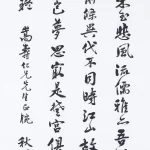 玉悲風流儒雅亦吾
條異代不同時江山故
豈夢思最是楚宮俱
壽仁兄先生正腕 秋